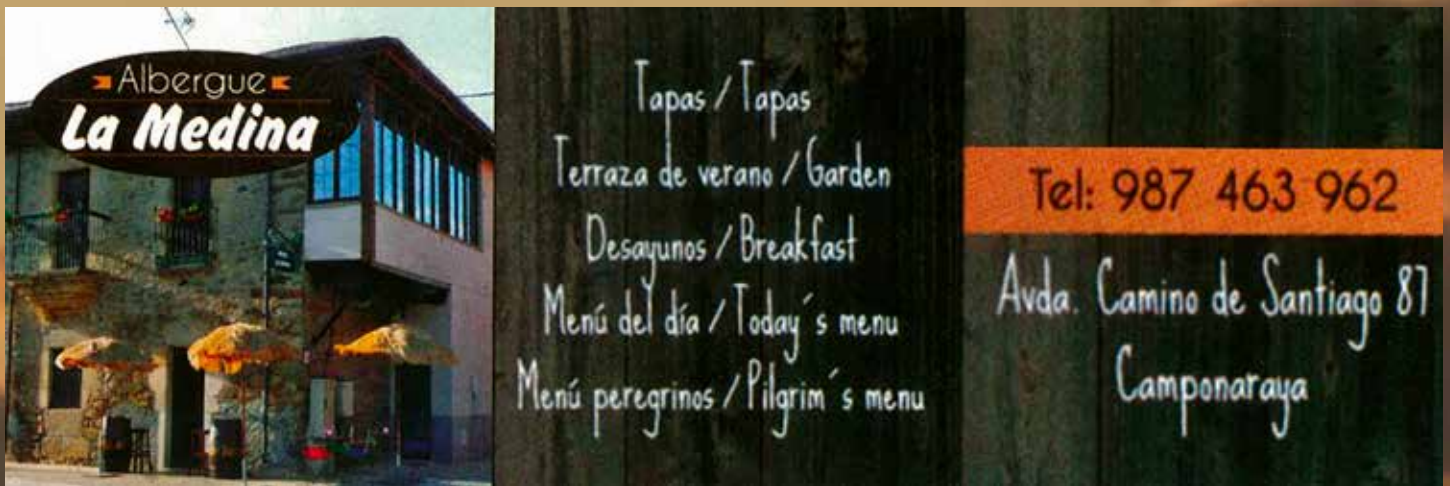 Albergue
La Medina
Tapas / Tapas
Terraza de verano / Garden
Desayunos / Breakfast
Menú del día / Today´s menu
Menú peregrinos / Pilgrim´s menu
Tel: 987 463 962
Avda. Camino de Santiago 87
Camponaraya